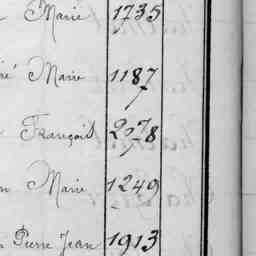 Marie 1735
Marie 1187
François 2078
Marie 1249
Pierre Jean 1913